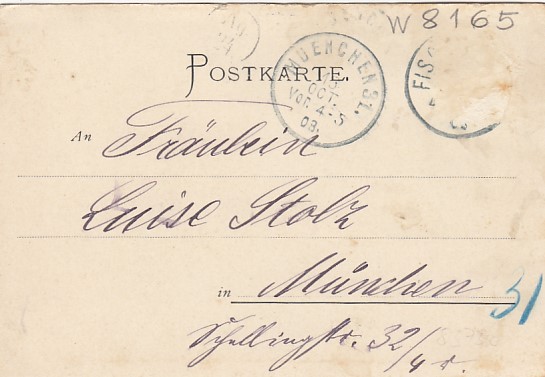 W 8165
POSTKARTE.
MUENCHEN 31.
OCT.
Vor. 4-5
03.
FISC
An Fräulein
Luise Stolz
in München 31
Schellingstr. 32/4 r.